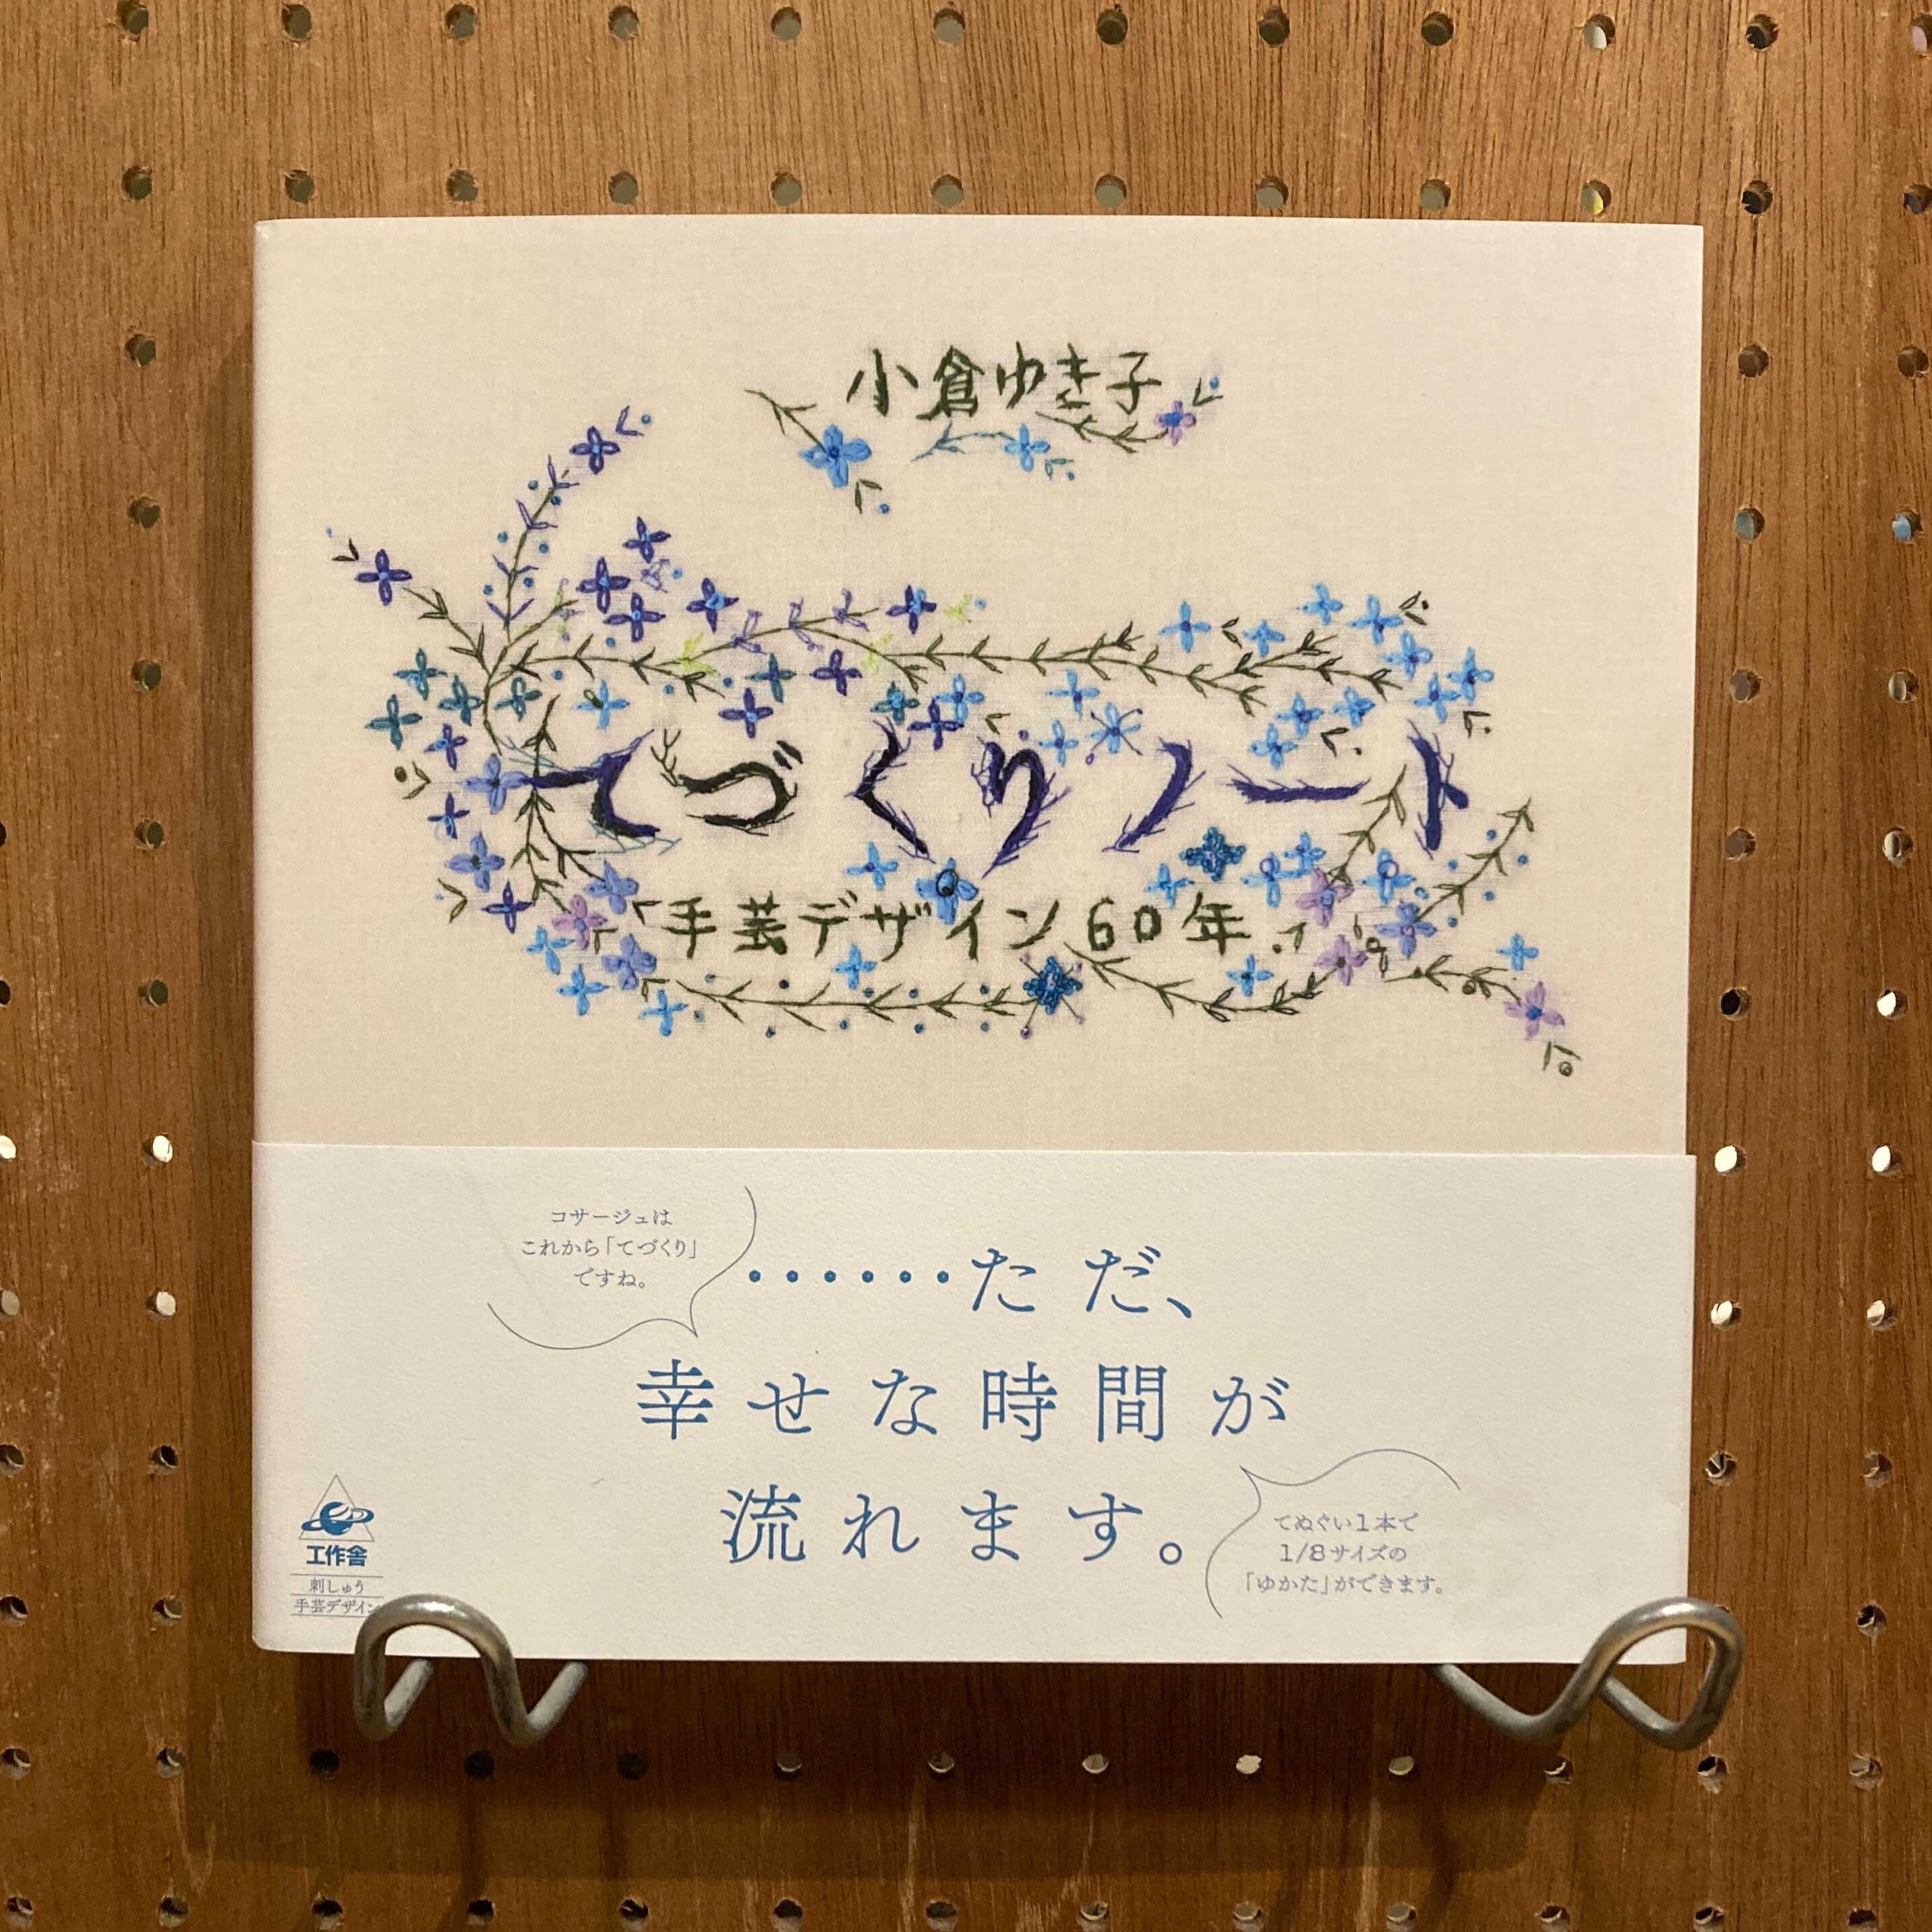 小倉ゆき子
てづくりノート
手芸デザイン60年
コサージュは
これから「てづくり」
ですね。
・・・・・・ただ、
幸せな時間が
流れます。
てぬぐい1本で
1/8サイズの
「ゆかた」ができます。
工作舎
刺しゅう
手芸デザイン